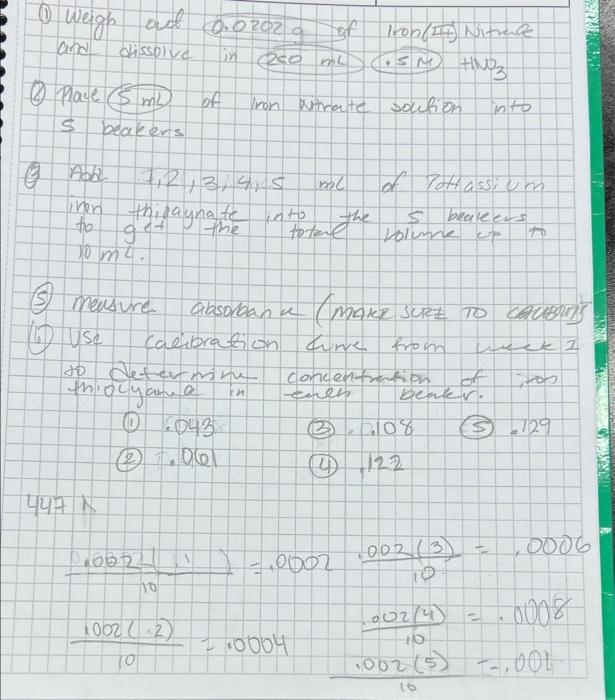 ① Weigh out 0.0202 g of Iron(III) Nitrate
and dissolve in 250 mL .5 M HNO3
② Place 5 mL of Iron nitrate solution into
5 beakers
③ Add 1, 2, 3, 4, 5 mL of Pottassium
iron thioaynate into the 5 beakers
to get the total volume up to
10 mL.
⑤ measure absorbance (MAKE SURE TO
⑥ Use calibration curve from week 1
to determine concentration of iron
thiocyanate in each beaker.
① .043 ③ .108 ⑤ .129
② .061 ④ .122
447 λ
(1)/10 = .0002 .002(3)/10 = .0006
.002(.2)/10 = .0004 .002(4)/10 = .0008
.002(5)/10 = .001